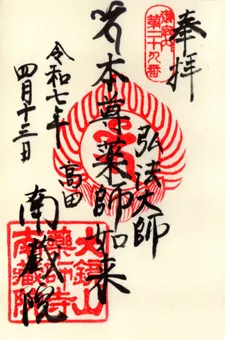 奉拝
御府内
第二十九番
弘法大師
本尊薬師如来
令和七年
四月十三日
高田
南蔵院
大鏡山
藥師寺
南藏院